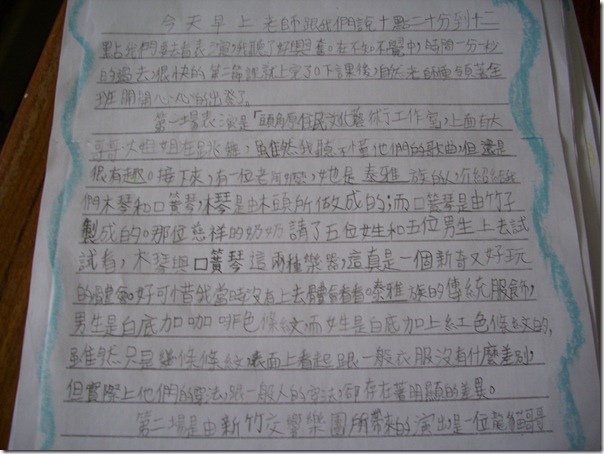 今天早上老師跟我們說十點二十分到十二
點我們要去看表演,我聽了好興奮。在不知不覺中,時間一分一秒
的過去,很快的第二節課就上完了。下課後,自然老師帶領著全
班開開心心的出發了。
第一場表演是「頭角原住民文化藝術工作室,上面有大
哥哥大姐姐在跳舞,雖然我聽不懂他們的歌曲,但還是
很有趣。接下來,有一位老奶奶,她也是泰雅族的人,介紹給我
們木琴和口簧琴,木琴是由木頭所做成的;而口簧琴是由竹子
製成的。那位慈祥的奶奶請了五位女生和五位男生上去試
試看,木琴與口簧琴這兩種樂器,這真是一個新奇又好玩
的體會。好可惜我當時沒有上去體會看看。泰雅族的傳統服飾,
男生是白底加咖啡色條紋而女生是白底加上紅色條紋的,
雖然只是幾條條紋表面上看起跟一般衣服沒有什麼差別,
但實際上他們的穿法跟一般人的穿法卻存在著明顯的差異。
第二場是由新竹交響樂團所帶來的演出,是一位熊貓哥哥